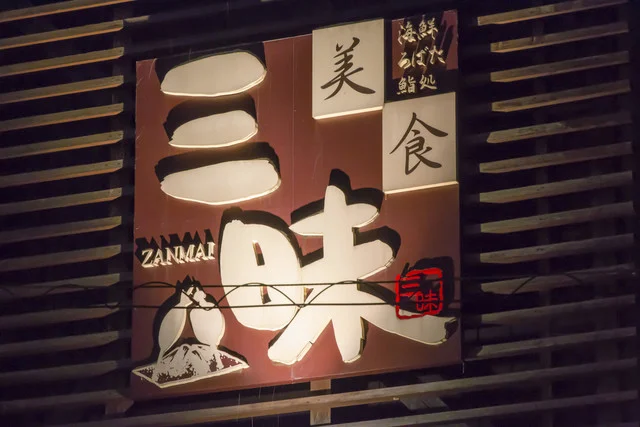 海鮮
ろばた
鮨処
美
食
三
味
ZANMAI
三味